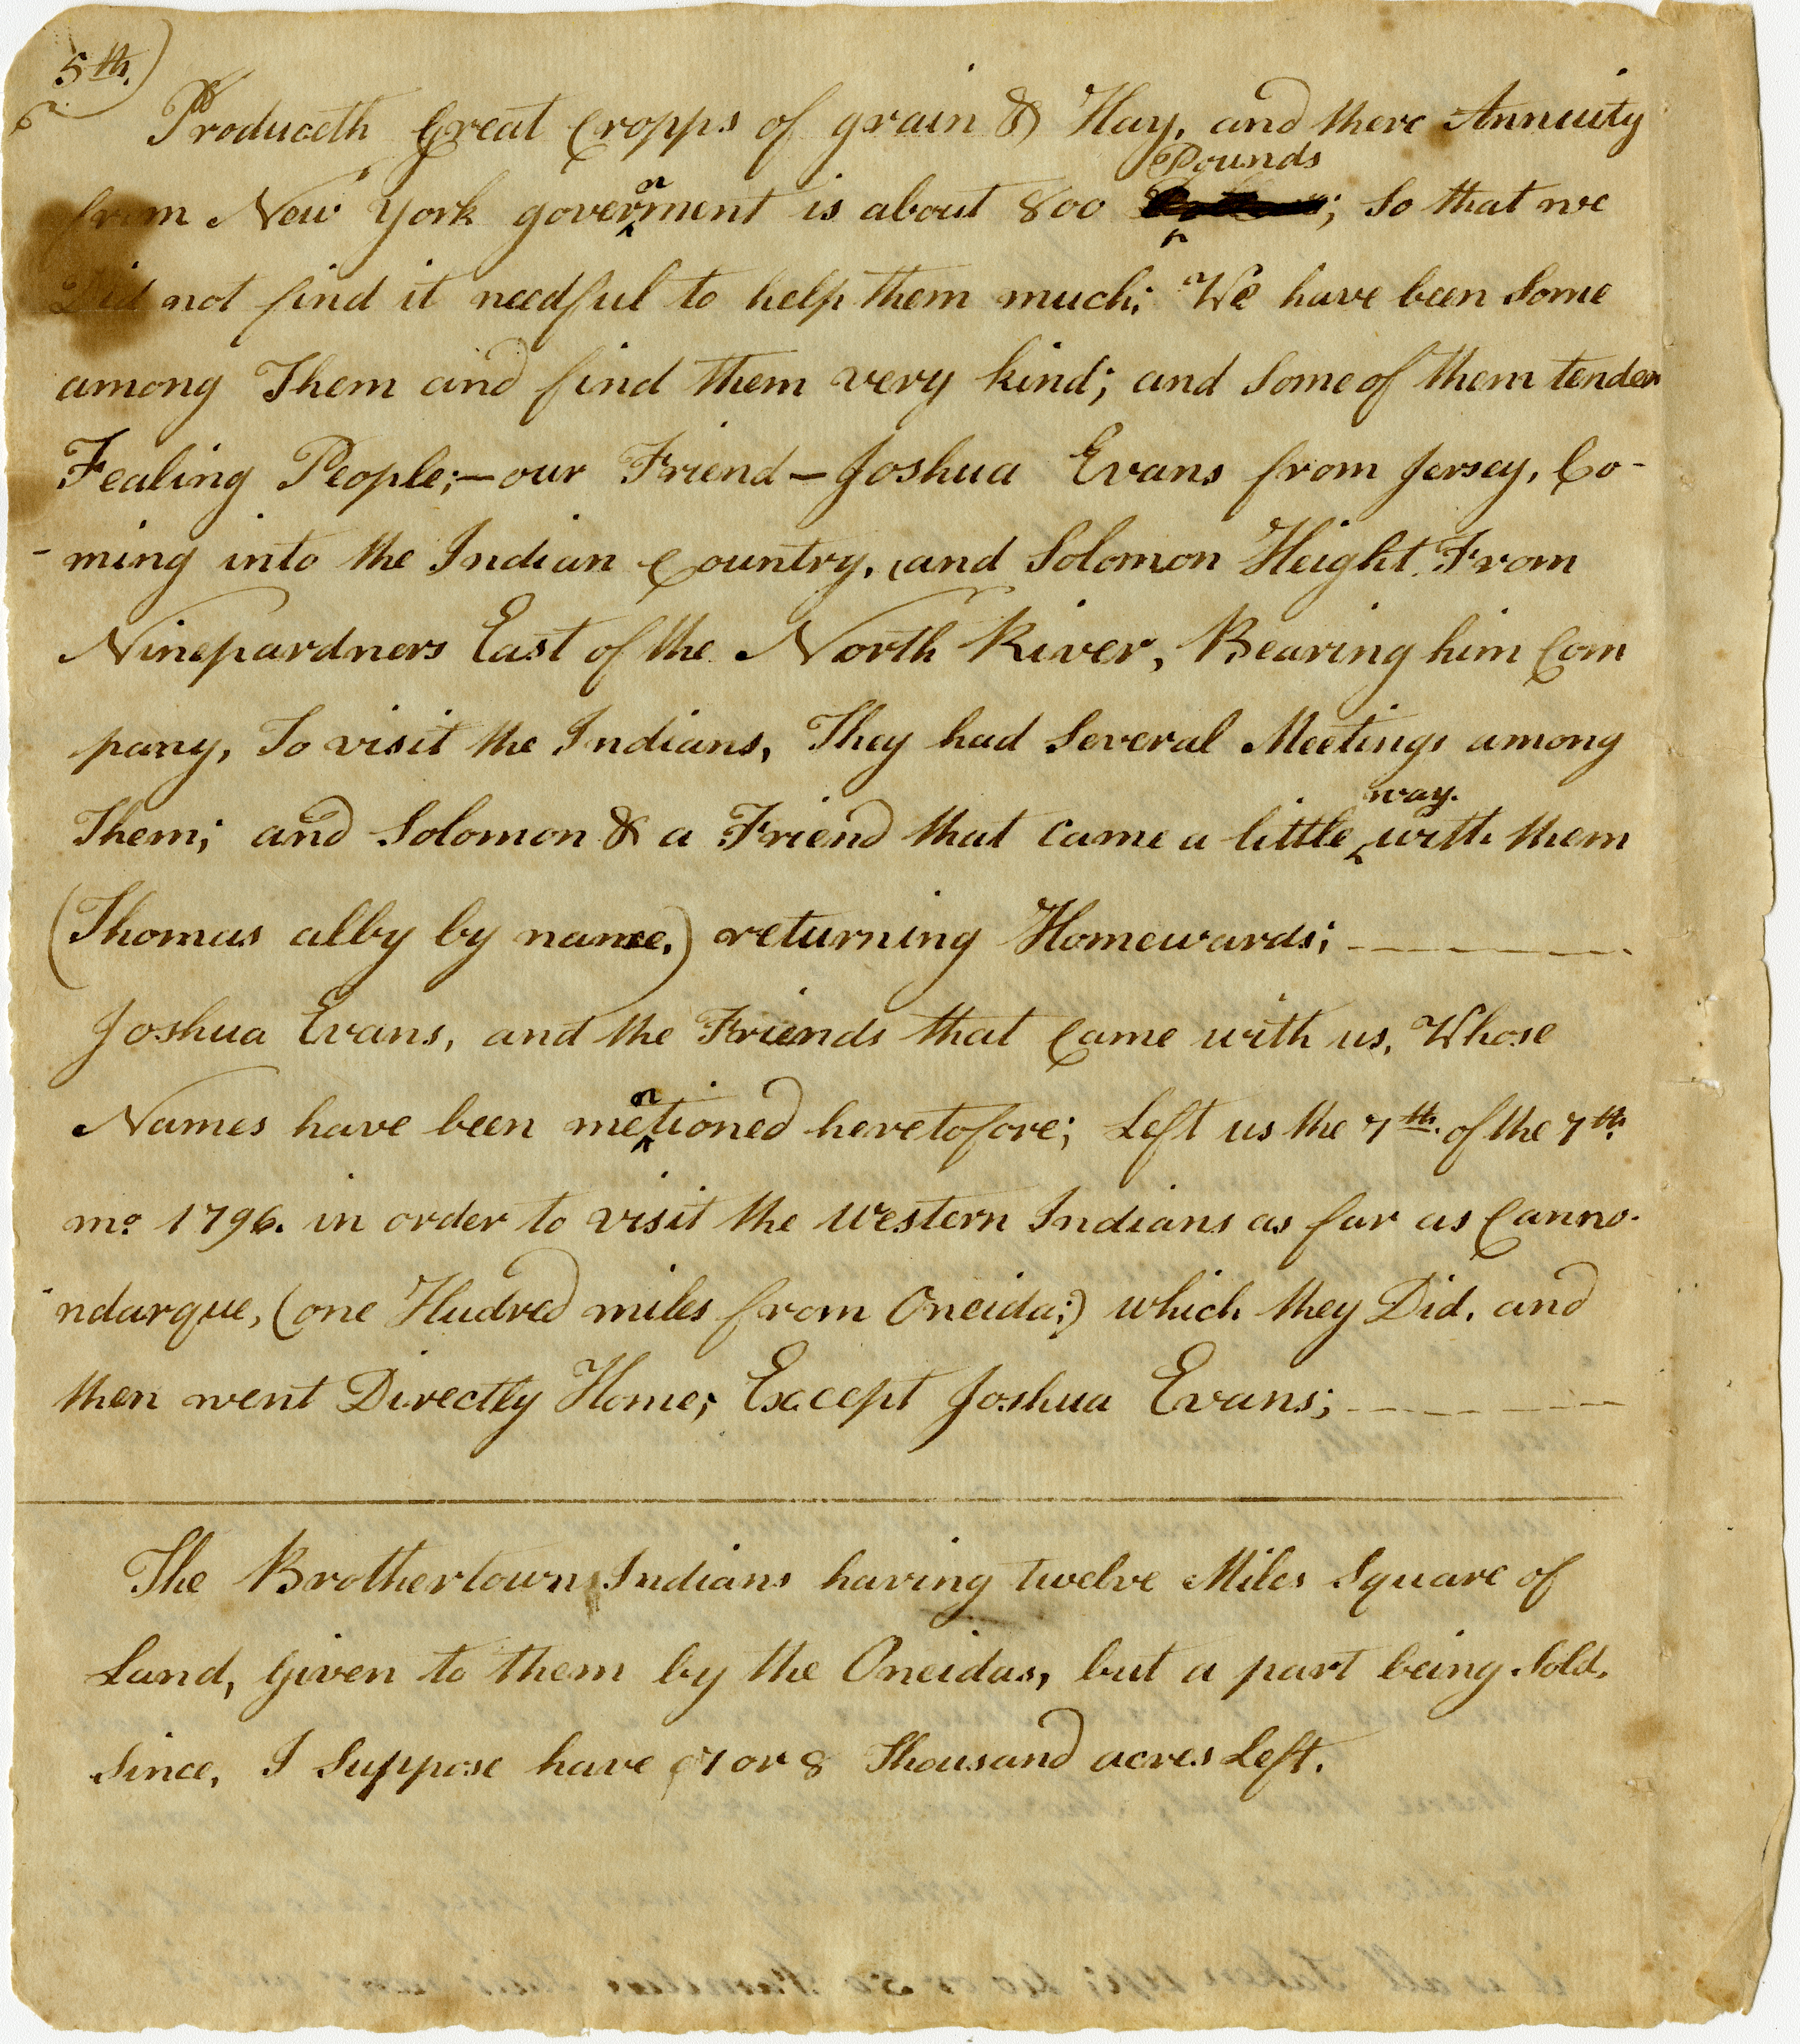 5th.)
Produceth Great Cropps of grain & Hay, and there Annuity
from New York government is about 800 Pounds; So that we
Did not find it needful to help them much; We have been Some
among Them and find them very kind; and Some of them tender
Fealing People;—our Friend—Joshua Evans from Jersey, Co-
-ming into the Indian Country, and Solomon Height From
Ninepardners East of the North River, Bearing him Com
pany, To visit the Indians, They had Several Meetings among
Them; and Solomon & a Friend that came a little way. with them
(Thomas alby by name,) returning Homewards;
Joshua Evans, and the Friends that Came with us, Whose
Names have been mentioned heretofore; Left us the 7th. of the 7th.
mo. 1796. in order to visit the western Indians as far as Canno-
-ndarque, (one Hudred miles from Oneida;) which they Did, and
then went Directly Home; Except Joshua Evans;
The Brothertown Indians having twelve Miles Square of
Land, Given to them by the Oneidas, but a part being Sold,
Since, I Suppose have 7 or 8 Thousand acres Left.